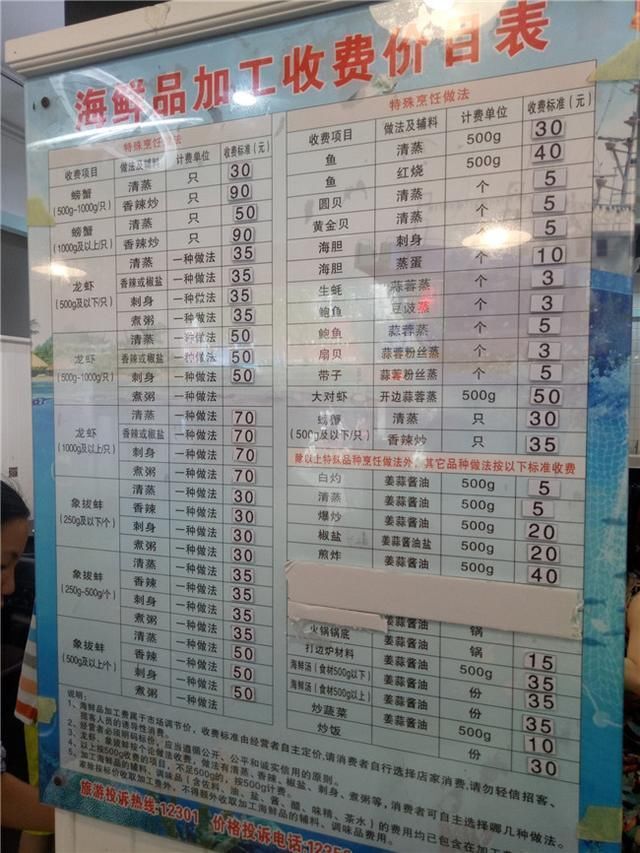 海鲜品加工收费价目表
特殊烹饪做法
收费项目 做法及辅料 计费单位 收费标准(元)
螃蟹 (500g-1000g/只) 清蒸 只 30
香辣炒 只 90
螃蟹 (1000g及以上/只) 清蒸 只 50
香辣炒 只 90
龙虾 (500g及以下/只) 清蒸 一种做法 35
香辣或椒盐 一种做法 35
刺身 一种做法 35
煮粥 一种做法 35
龙虾 (500g-1000g/只) 清蒸 一种做法 50
香辣或椒盐 一种做法 50
刺身 一种做法 50
煮粥 一种做法
龙虾 (1000g及以上/只) 清蒸 一种做法 70
香辣或椒盐 一种做法 70
刺身 一种做法 70
煮粥 一种做法 70
象拔蚌 (250g及以下/个) 清蒸 一种做法 30
香辣 一种做法 30
刺身 一种做法 30
煮粥 一种做法 30
象拔蚌 (250g-500g/个) 清蒸 一种做法 35
香辣 一种做法 35
刺身 一种做法 35
煮粥 一种做法 35
象拔蚌 (500g及以上/个) 清蒸 一种做法 50
香辣 一种做法 50
刺身 一种做法 50
煮粥 一种做法
特殊烹饪做法
收费项目 做法及辅料 计费单位 收费标准(元)
鱼 清蒸 500g 30
鱼 红烧 500g 40
圆贝 清蒸 个 5
黄金贝 清蒸 个
海胆 刺身 个 5
海胆 蒸蛋 个 10
生蚝 蒜蓉蒸 个 3
鲍鱼 豆豉蒸 个 3
鲍鱼 蒜蓉蒸 个 5
扇贝 蒜蓉粉丝蒸 个 3
带子 蒜蓉粉丝蒸 个 5
大对虾 开边蒜蓉蒸 500g 50
螃蟹 (500g及以下/只) 清蒸 只 30
香辣炒 只 35
除以上特殊品种烹饪做法外，其它品种做法按以下标准收费
白灼 姜蒜酱油 500g 5
清蒸 姜蒜酱油 500g 5
爆炒 姜蒜酱油 500g 20
椒盐 姜蒜酱油盐 500g 20
煎炸 姜蒜酱油 500g 40
火锅锅底 姜蒜酱油 锅
打边炉材料 姜蒜酱油 500g 15
海鲜汤(食材500g以下) 姜蒜酱油 份 35
海鲜汤(食材500g以上) 姜蒜酱油 份 35
炒蔬菜 姜蒜酱油 500g 10
炒饭 份 30
说明:
1、海鲜品加工费属于市场调节价，收费标准由经营者自主定价,请消费者自行选择店家消费,请勿轻信招客、
揽客人员的诱导性消费。
2、经营者必须明码标价，应当遵循公开、公平和诚实信用的原则。
3、龙虾、象拔蚌按个论做法收费，做法有清蒸、香辣、椒盐、刺身、煮粥等，消费者可自主选择哪几种做法。
4、以上按500g收费的项目，不足500g的，按500g计费。
5、加工海鲜品的辅料、调味品(含饮料、油、盐、酱、醋、味精、茶水)的费用均已包含在加工费
除按标价收取加工费外，不得额外收取加工海鲜品的辅料、调味品费用。
旅游投诉热线:12301 价格投诉电话:12358